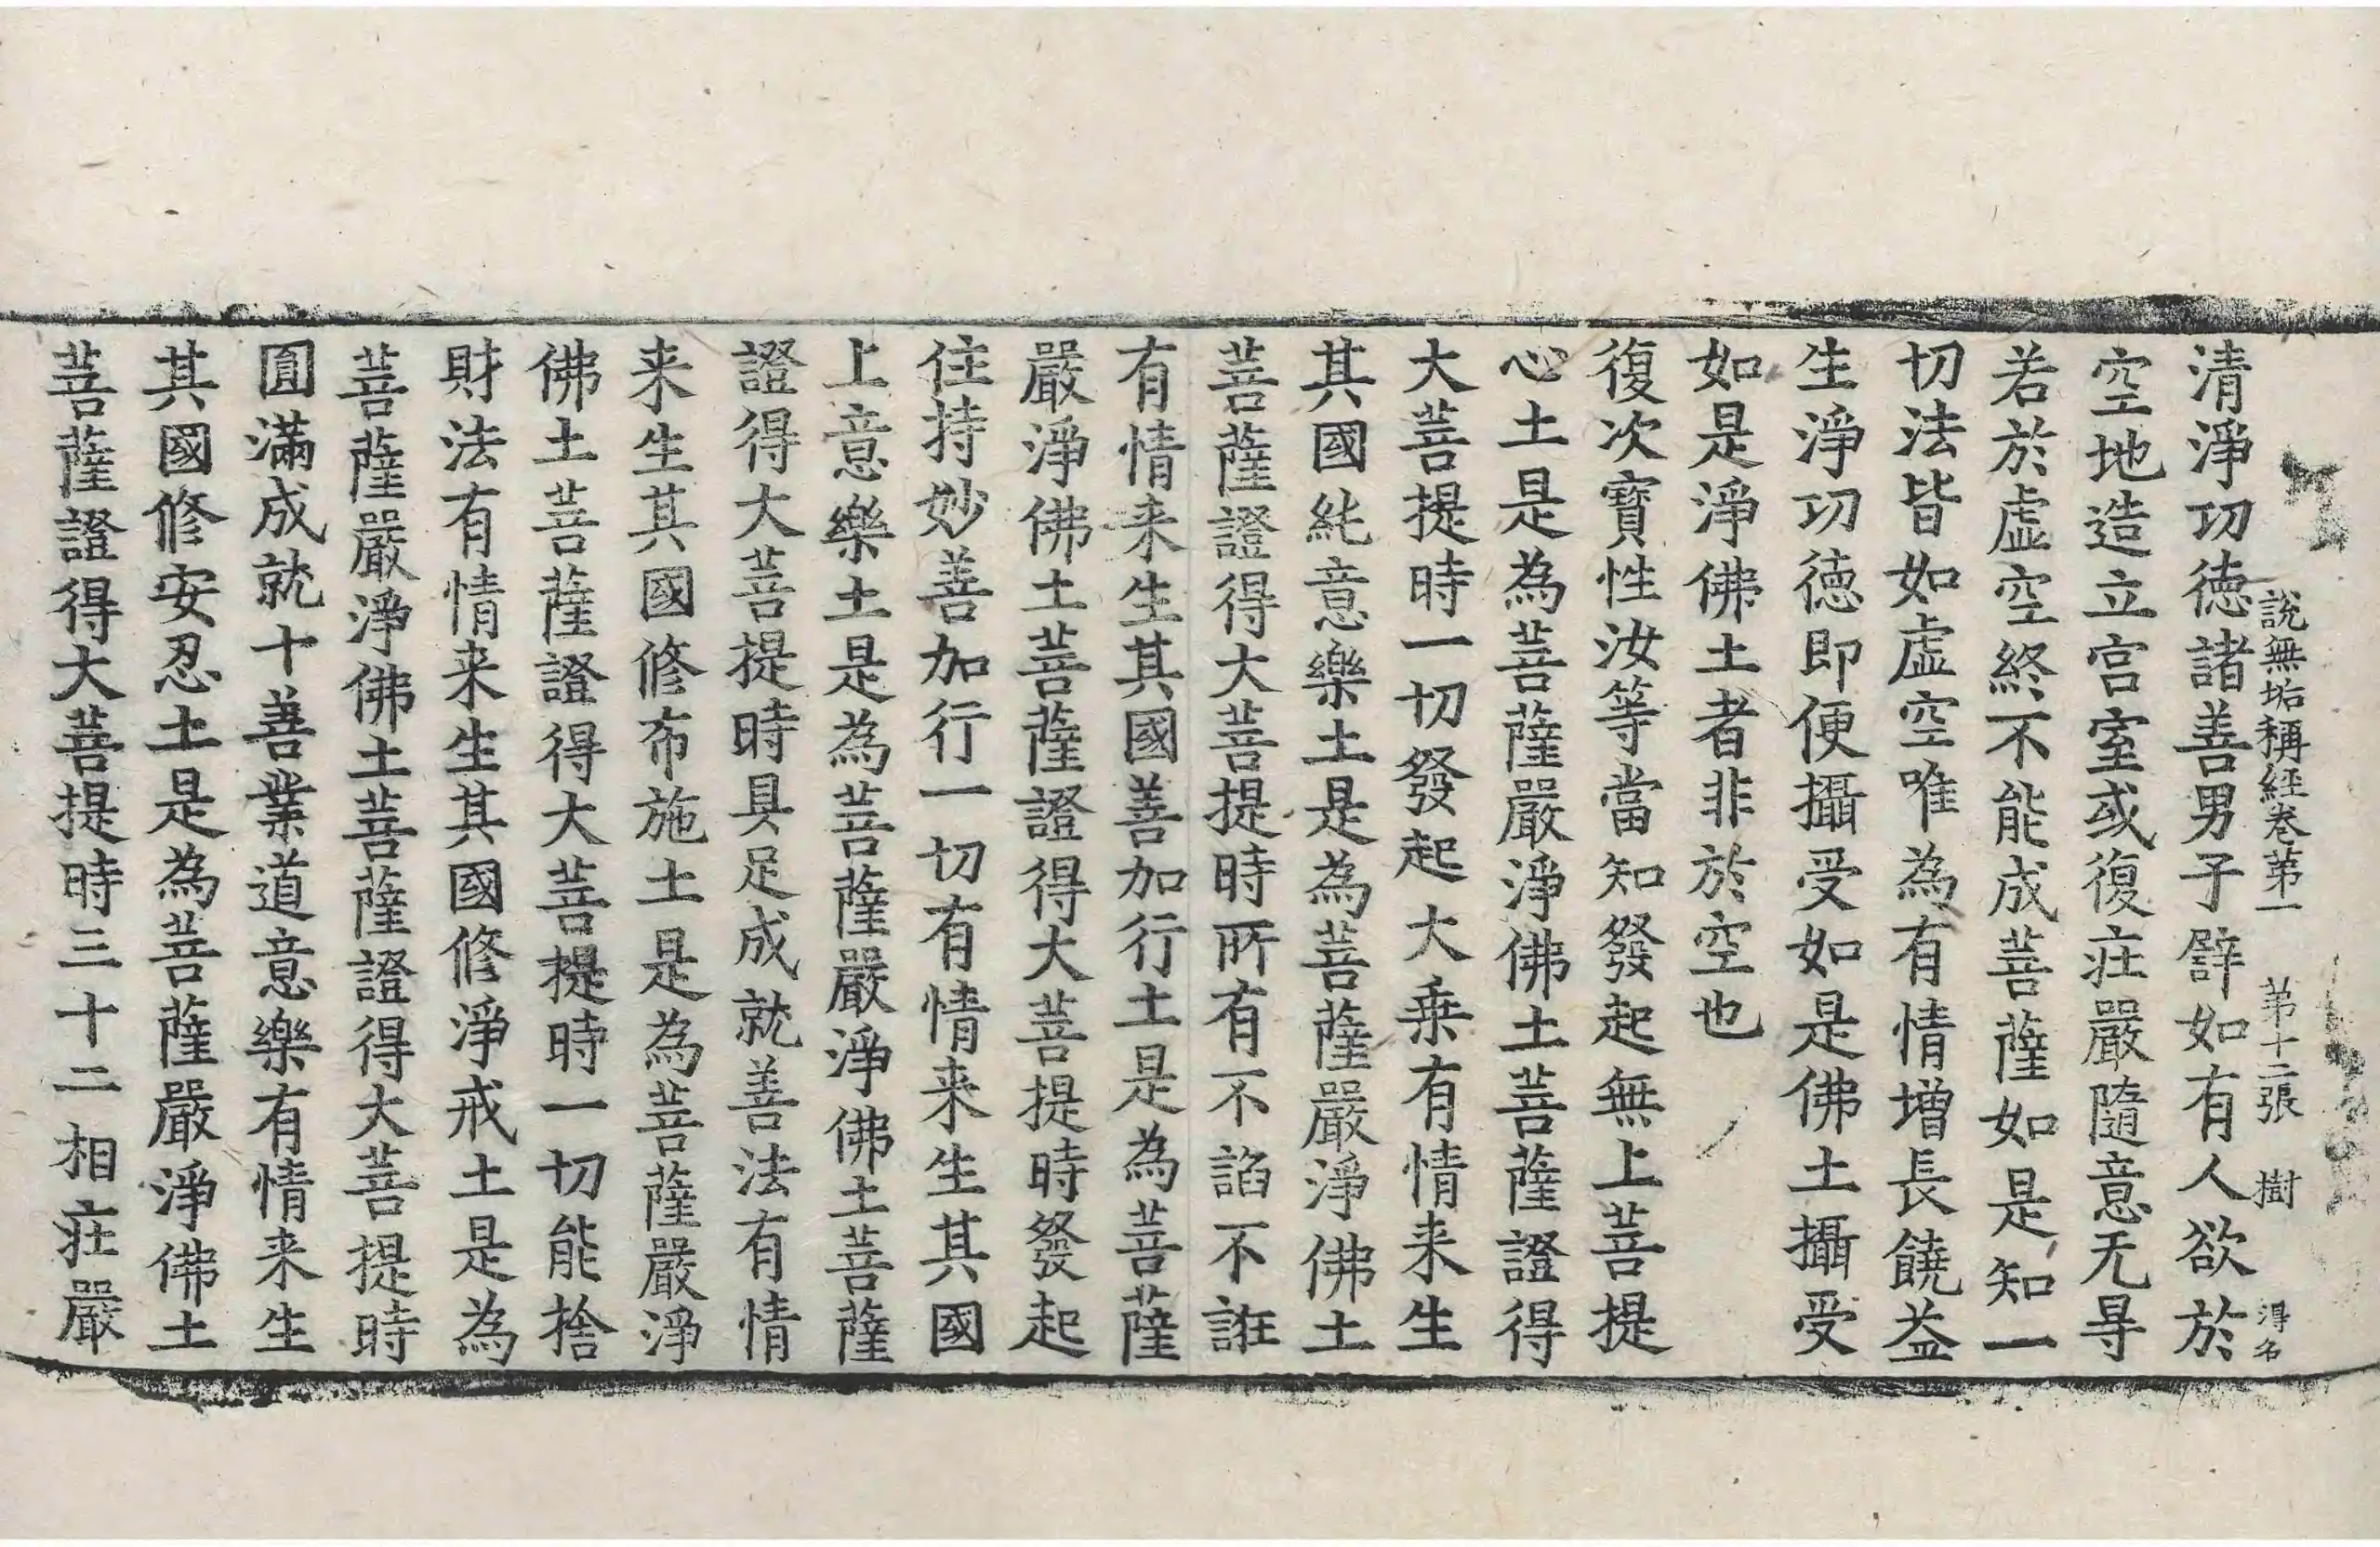 說無垢稱經卷苐一 苐十二張 樹 淂名
清淨功德諸善男子譬如有人欲於
空地造立宫室或復莊嚴隨意无㝵
若於虛空終不能成菩薩如是知一
切法皆如虛空唯為有情增長饒益
生淨功德即便攝受如是佛土攝受
如是淨佛土者非於空也
復次寶性汝等當知發起無上菩提
心土是為菩薩嚴淨佛土菩薩證得
大菩提時一切發起大乗有情来生
其國純意樂土是為菩薩嚴淨佛土
菩薩證得大菩提時所有不諂不誑
有情来生其國善加行土是為菩薩
嚴淨佛土菩薩證得大菩提時發起
住持妙善加行一切有情来生其國
上意樂土是為菩薩嚴淨佛土菩薩
證得大菩提時具足成就善法有情
来生其國修布施土是為菩薩嚴淨
佛土菩薩證得大菩提時一切能捨
財法有情来生其國修淨戒土是為
菩薩嚴淨佛土菩薩證得大菩提時
圓滿成就十善業道意樂有情来生
其國修安忍土是為菩薩嚴淨佛土
菩薩證得大菩提時三十二相莊嚴